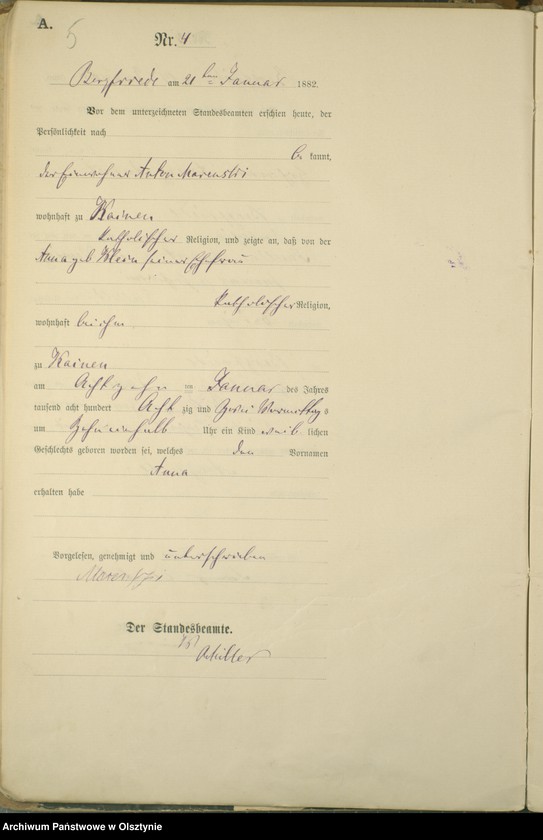 A.
5
Nr. 4
Bergfriede am 21 ten Januar 1882.
Vor dem unterzeichneten Standesbeamten erschien heute, der
Persönlichkeit nach
be kannt,
der Einwohner Anton Marenski
wohnhaft zu Kainen
katholischer Religion, und zeigte an, daß von der
Anna geb Klein seiner Ehefrau
katholischer Religion,
wohnhaft bei ihm
zu Kainen
am Achtzehn = Januar des Jahres
tausend acht hundert Acht zig und Zwei Vormittags
um Zehneinhalb Uhr ein Kind weib lichen
Geschlechts geboren worden sei, welches den Vornamen
Anna
erhalten habe
Vorgelesen, genehmigt und unterschrieben
Marenski
Der Standesbeamte.
Archiwum Państwowe w Olsztynie